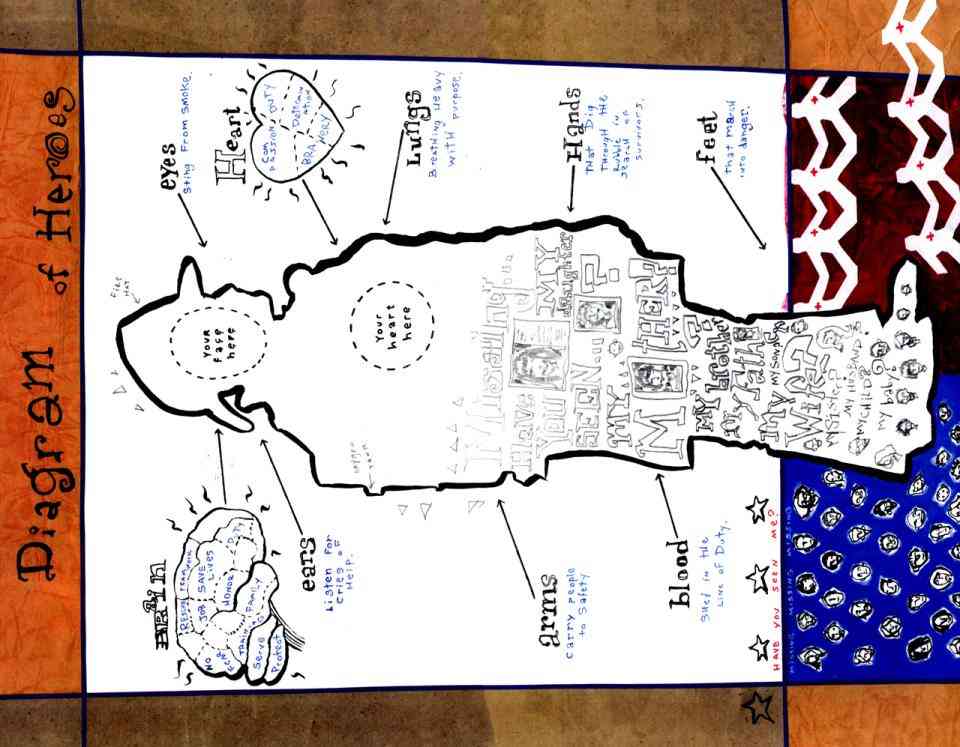 Diagram of Heroes
BRAIN
RESCUE TEAMWORK
JOB SAVE LIVES
DUTY
HONOR
NO
TRAIN
FAMILY
Serve
Protect
ears
Listen For
Cries of
Help.
arms
Carry people
to Safety
blood
Shed in the
Line of Duty.
HAVE YOU SEEN ME?
Fire
Hat
Your
face
here
Your
heart
here
Have
You
SEEN
MY
daughter
?
MY
MOTHER!
My brother
My father
My Son
My
Wife?
My Sister
My Husband
My Child
my baby?
eyes
Sting From Smoke.
Heart
COMPASSION
DUTY
BRAVORY
Lungs
Breathing Heavy
with purpose.
Hands
That Dig
Through the
Rubble in
search of
Survivors.
feet
that march
into danger.
MISSING MISSING MISSING